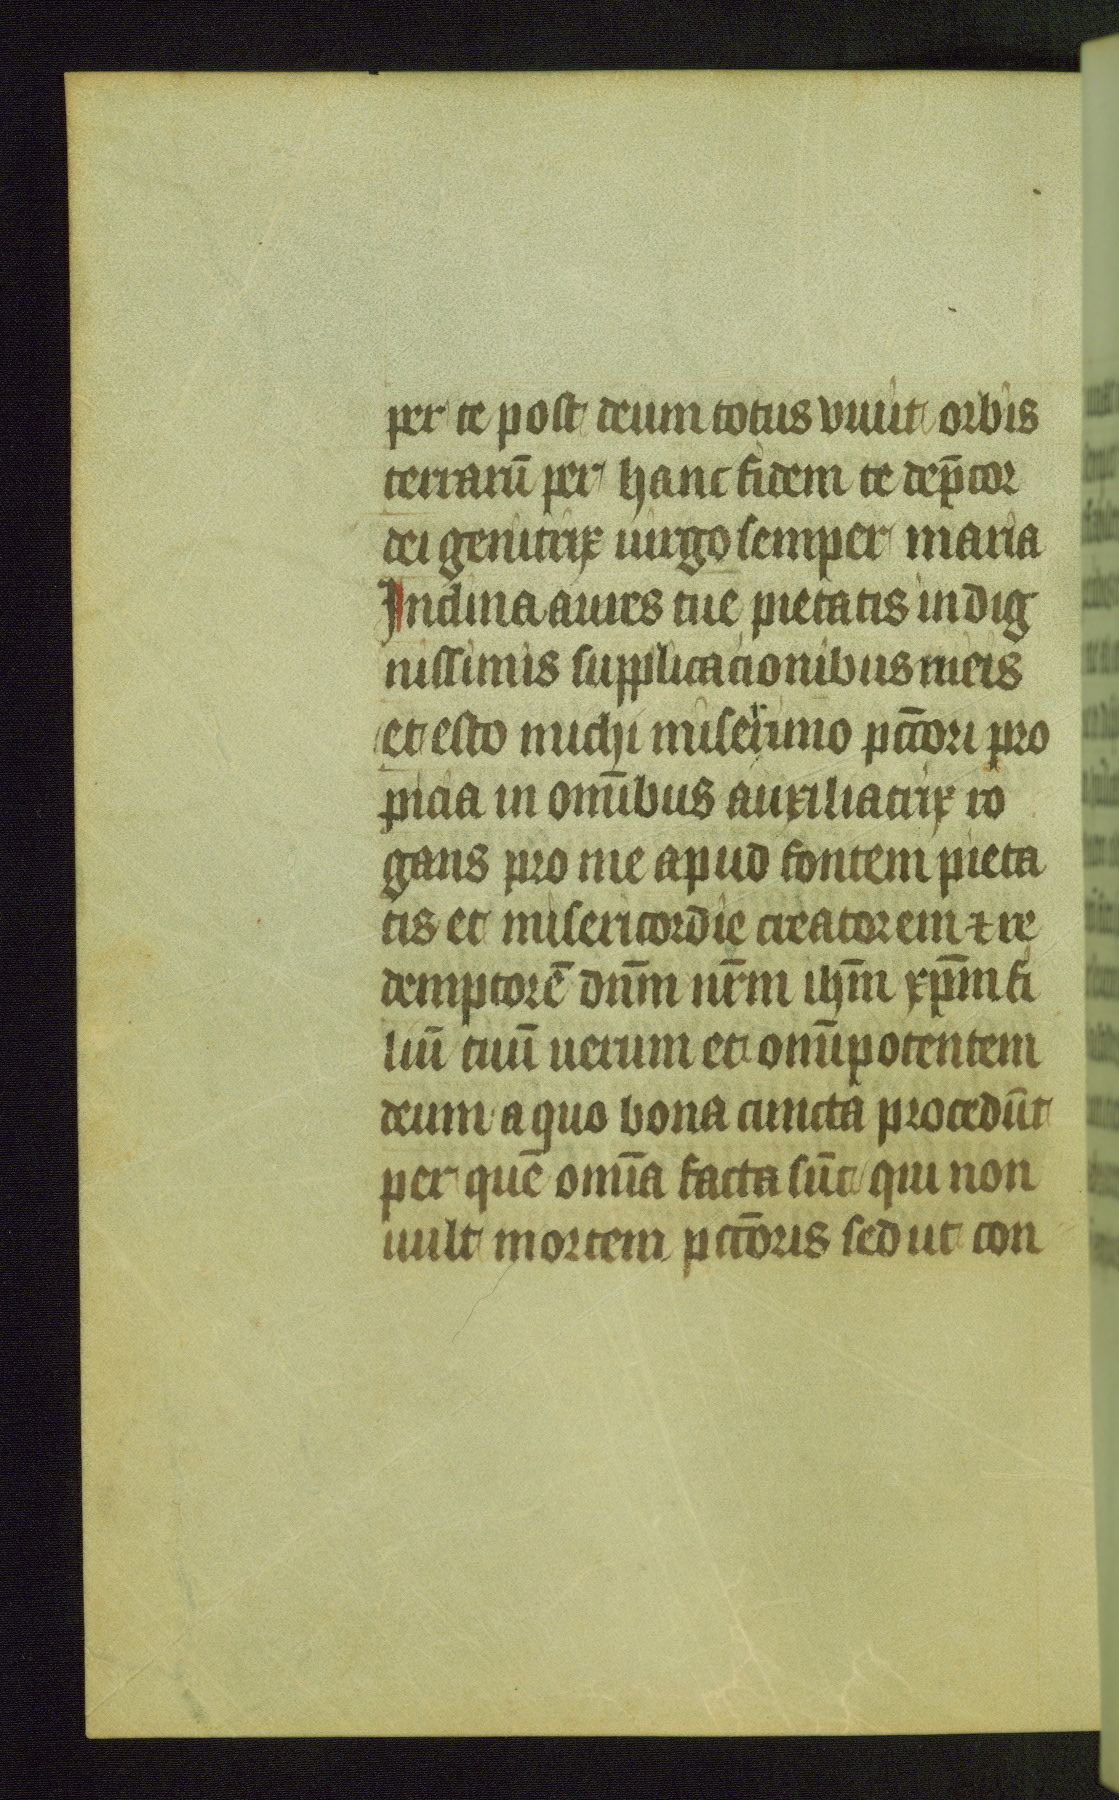 per te post deum totus viuit orbis
terrarū per hanc fidem te dep̄cor
dei genitrix uirgo semper maria
Inclina aures tue pietatis indig
nissimis supplicacionibus meis
et esto michi miserimo pctōri pro
picia in omībus auxiliatrix ro
gans pro me apud fontem pieta
tis et misericordie creatorem ⁊ re
demptorē dn̄m nr̄m ihm̄ xpm̄ fi
liū tuū uerum et omīpotentem
deum a quo bona cuncta procedūt
per quē omīa facta sūt qui non
uult mortem pctōris sed ut con